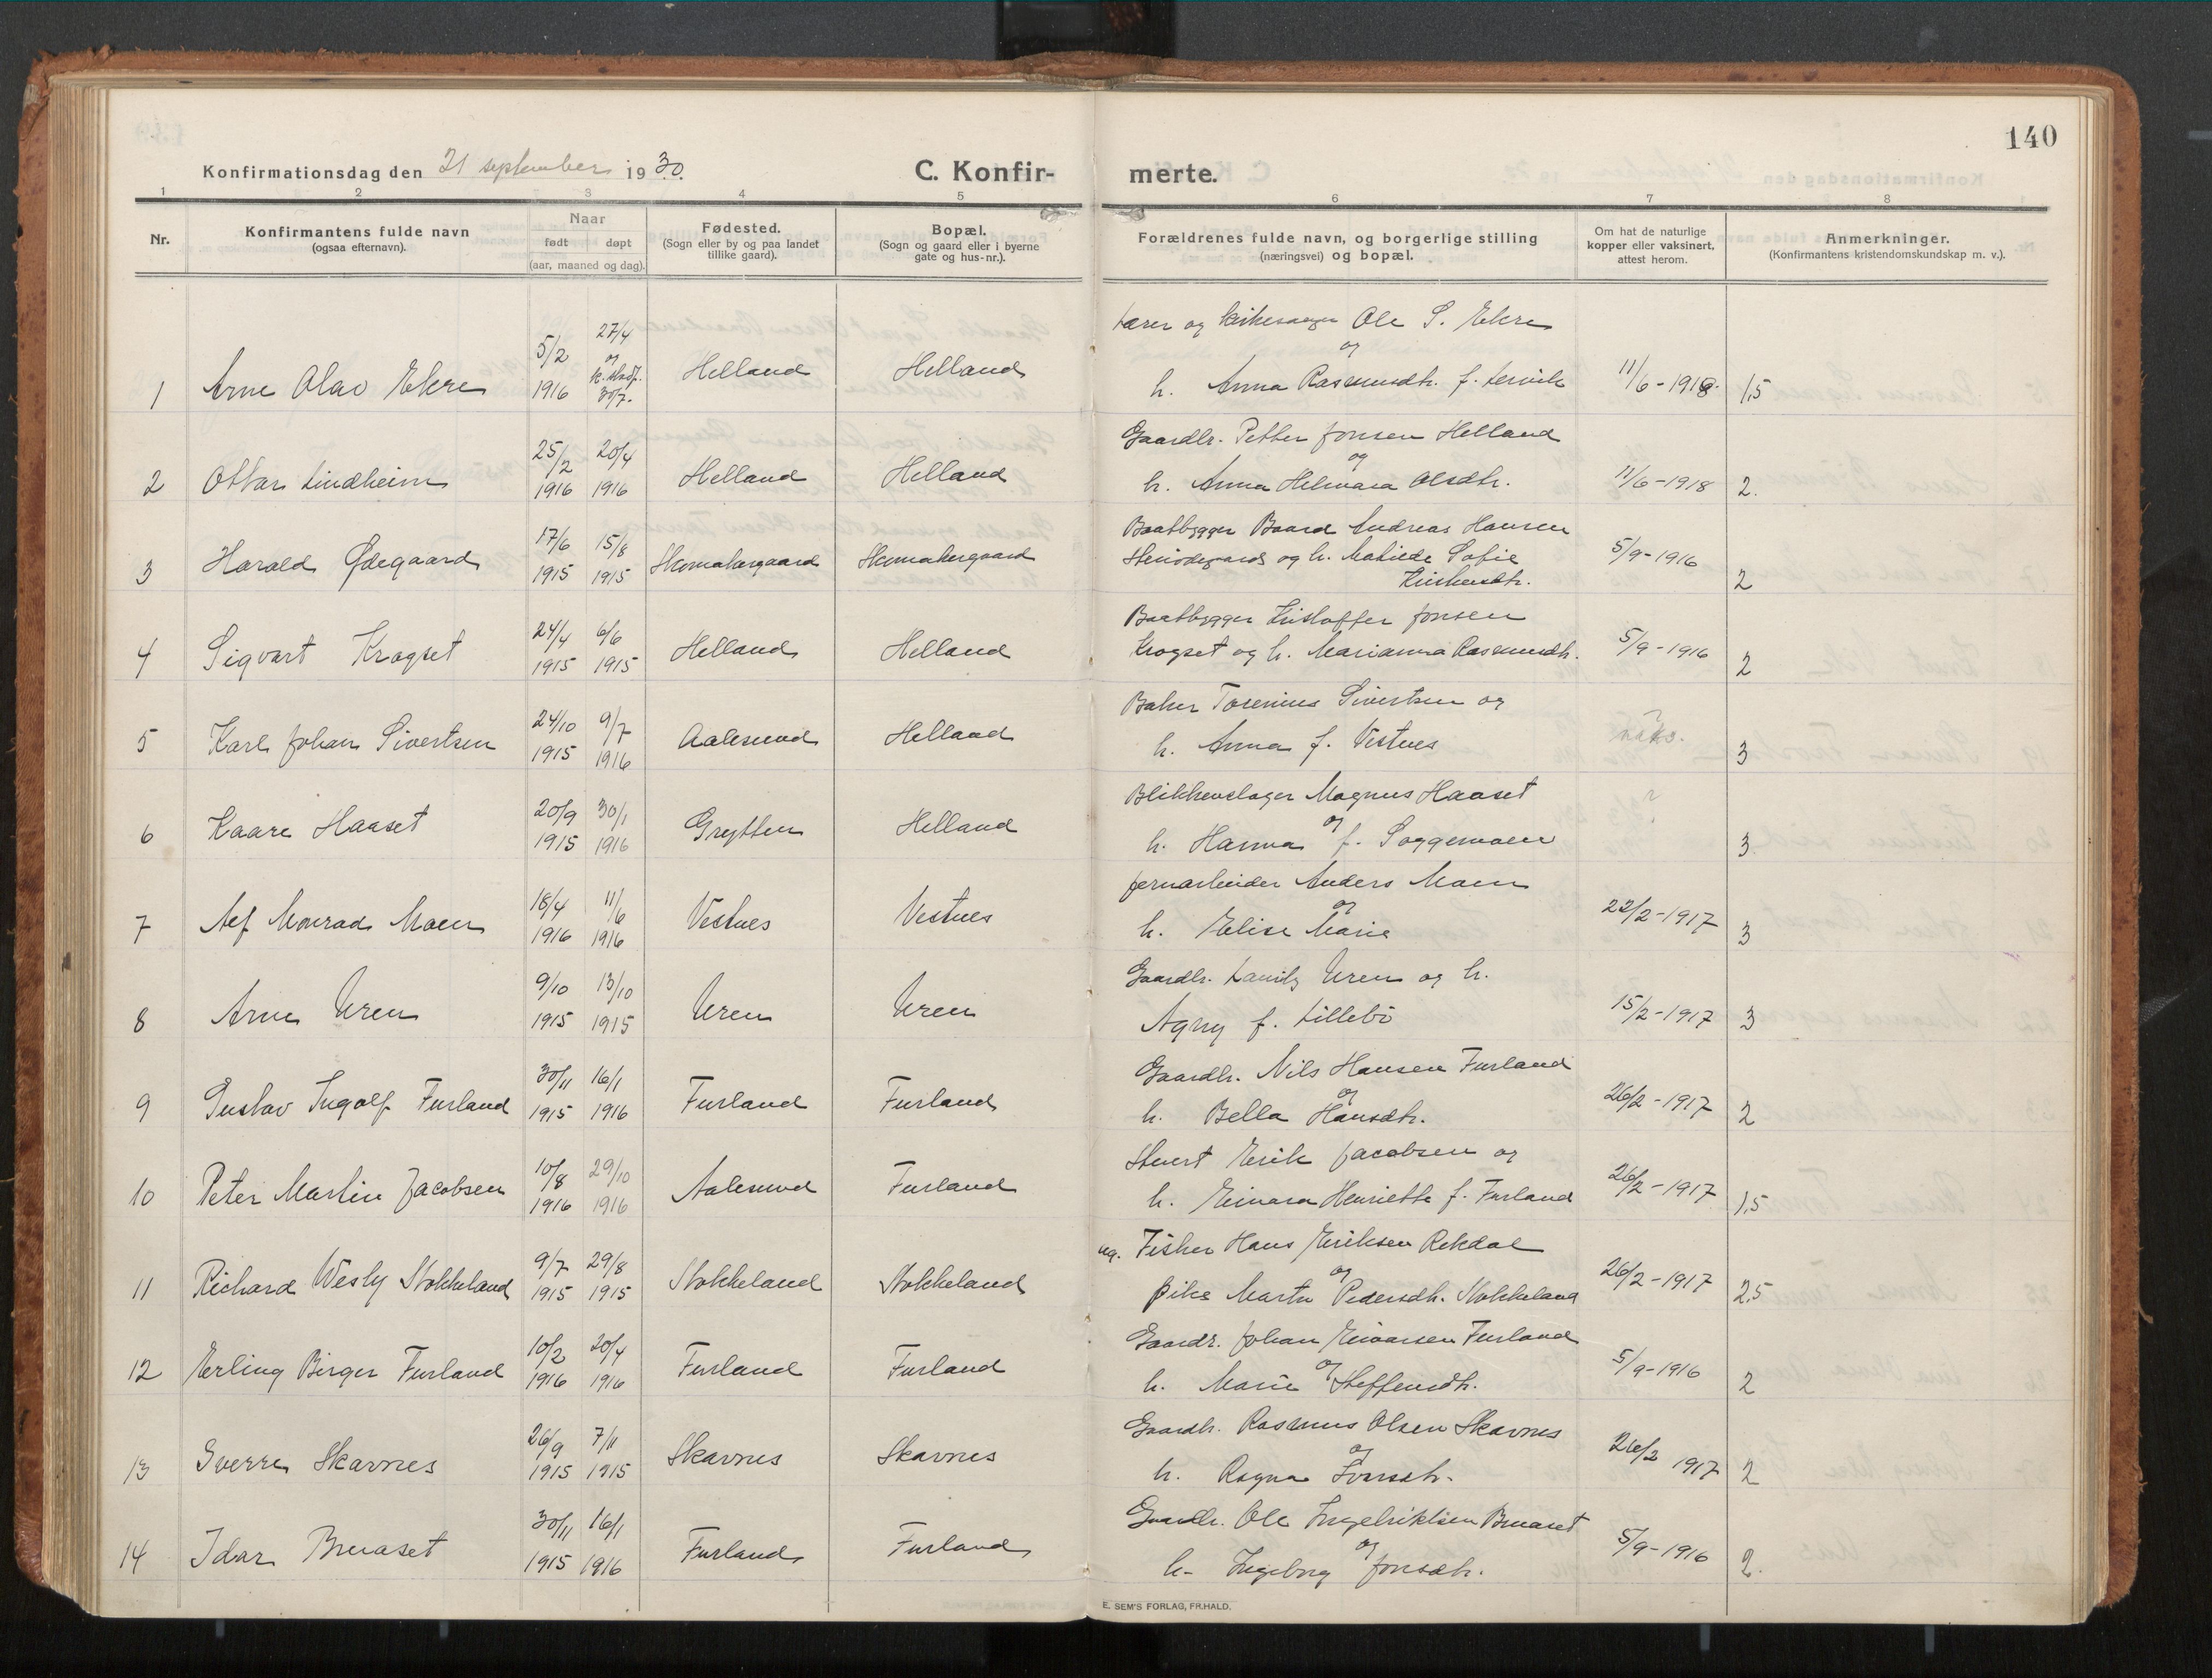 140
Konfirmationsdag den 21 september 1930. C. Konfir- merte.
1 2 3 4 5 6 7 8
Nr.
Konfirmantens fulde navn
(ogsaa efternavn).
Naar
født døpt
(aar, maaned og dag).
Fødested.
(Sogn eller by og paa landet
tillike gaard).
Bopæl.
(Sogn og gaard eller i byerne
gate og hus-nr.).
Forældrenes fulde navn, og borgerlige stilling
(næringsvei) og bopæl.
Om hat de naturlige
kopper eller vaksinert,
attest herom.
Anmerkninger.
(Konfirmantens kristendomskundskap m. v.).
Lærer og kirkesanger Ole S. Ekre
og
1 Arne Olav Ekre 5/2 1916 27/4 og k. stadf. 30/7. Helland Helland h. Anna Rasmusdtr. f. Lervik 11/6-1918. 1,5
Gaardbr. Petter Jonsen Helland
og
2 Ottar Lindheim 25/2 1916 20/4 1916 Helland Helland h. Anna Helmara Olsdtr. 11/6-1918 2.
Baatbygger Baard Andreas Hansen
3 Harald Ødegaard 17/6 1915 15/8 1915 Skomakergaard Skomakergaard og h. Matilde Sofie 5/9-1916 2
Kristensdtr.
Baatbygger Kristoffer Jonsen
4 Sigvart Krogset 24/4 1915 6/6 1915 Helland Helland Krogset og h. Marianna Rasmusdtr. 5/9-1916 2
Baker Torenius Sivertsen og
5 Karl Johan Sivertsen 24/10 1915 9/7 1916 Aalesund Helland h. Anna f. Vestnes ? vaks. 3
Blikkenslager Magnus Haaset
og
6 Kaare Haaset 20/9 1915 30/1 1916 Grytten Helland h. Hanna f. Soggemoen ? 3
Jernarbeider Anders Moen
og
7 Alf Monrad Moen 18/4 1916 11/6 1916 Vestnes Vestnes h. Elise Marie 22/2-1917 3
Gaardbr. Lauritz Uren og h.
8 Arne Uren 9/10 1915 13/10 1915 Uren Uren Agny f. Lillebö 15/2-1917 3
Gaardbr. Nils Hansen Furland
og
9 Gustav Ingolf Furland 30/11 1915 16/1 1916 Furland Furland h. Bella Hansdtr. 26/2-1917 2
Stuert Erik Jacobsen og
10 Peter Martin Jacobsen 10/8 1916 29/10 1916 Aalesund Furland h. Einara Henriette f. Furland 26/2-1917 1,5
ug. Fisker Hans Eriksen Rekdal
og
11 Richard Wesly Stokkeland 9/7 1915 29/8 1915 Stokkeland Stokkeland pike Marta Pedersdtr. Stokkeland 26/2-1917 2,5
Gaardbr. Johan Einarsen Furland
og
12 Erling Birger Furland 10/2 1916 20/4 1916 Furland Furland h. Marie Steffensdtr. 5/9-1916 2
Gaardbr. Rasmus Olsen Skavnes
og
13 Sverre Skavnes 26/9 1915 7/11 1915 Skavnes Skavnes h. Ragna Iversdtr. 26/2 1917 2
Gaardbr. Ole Ingebriktsen Bruaset
og
14 Idar Bruaset 30/11 1915 16/1 1916 Furland Furland h. Ingeborg Jonsdtr. 5/9-1916 2.
E. SEM'S FORLAG, FR.HALD.